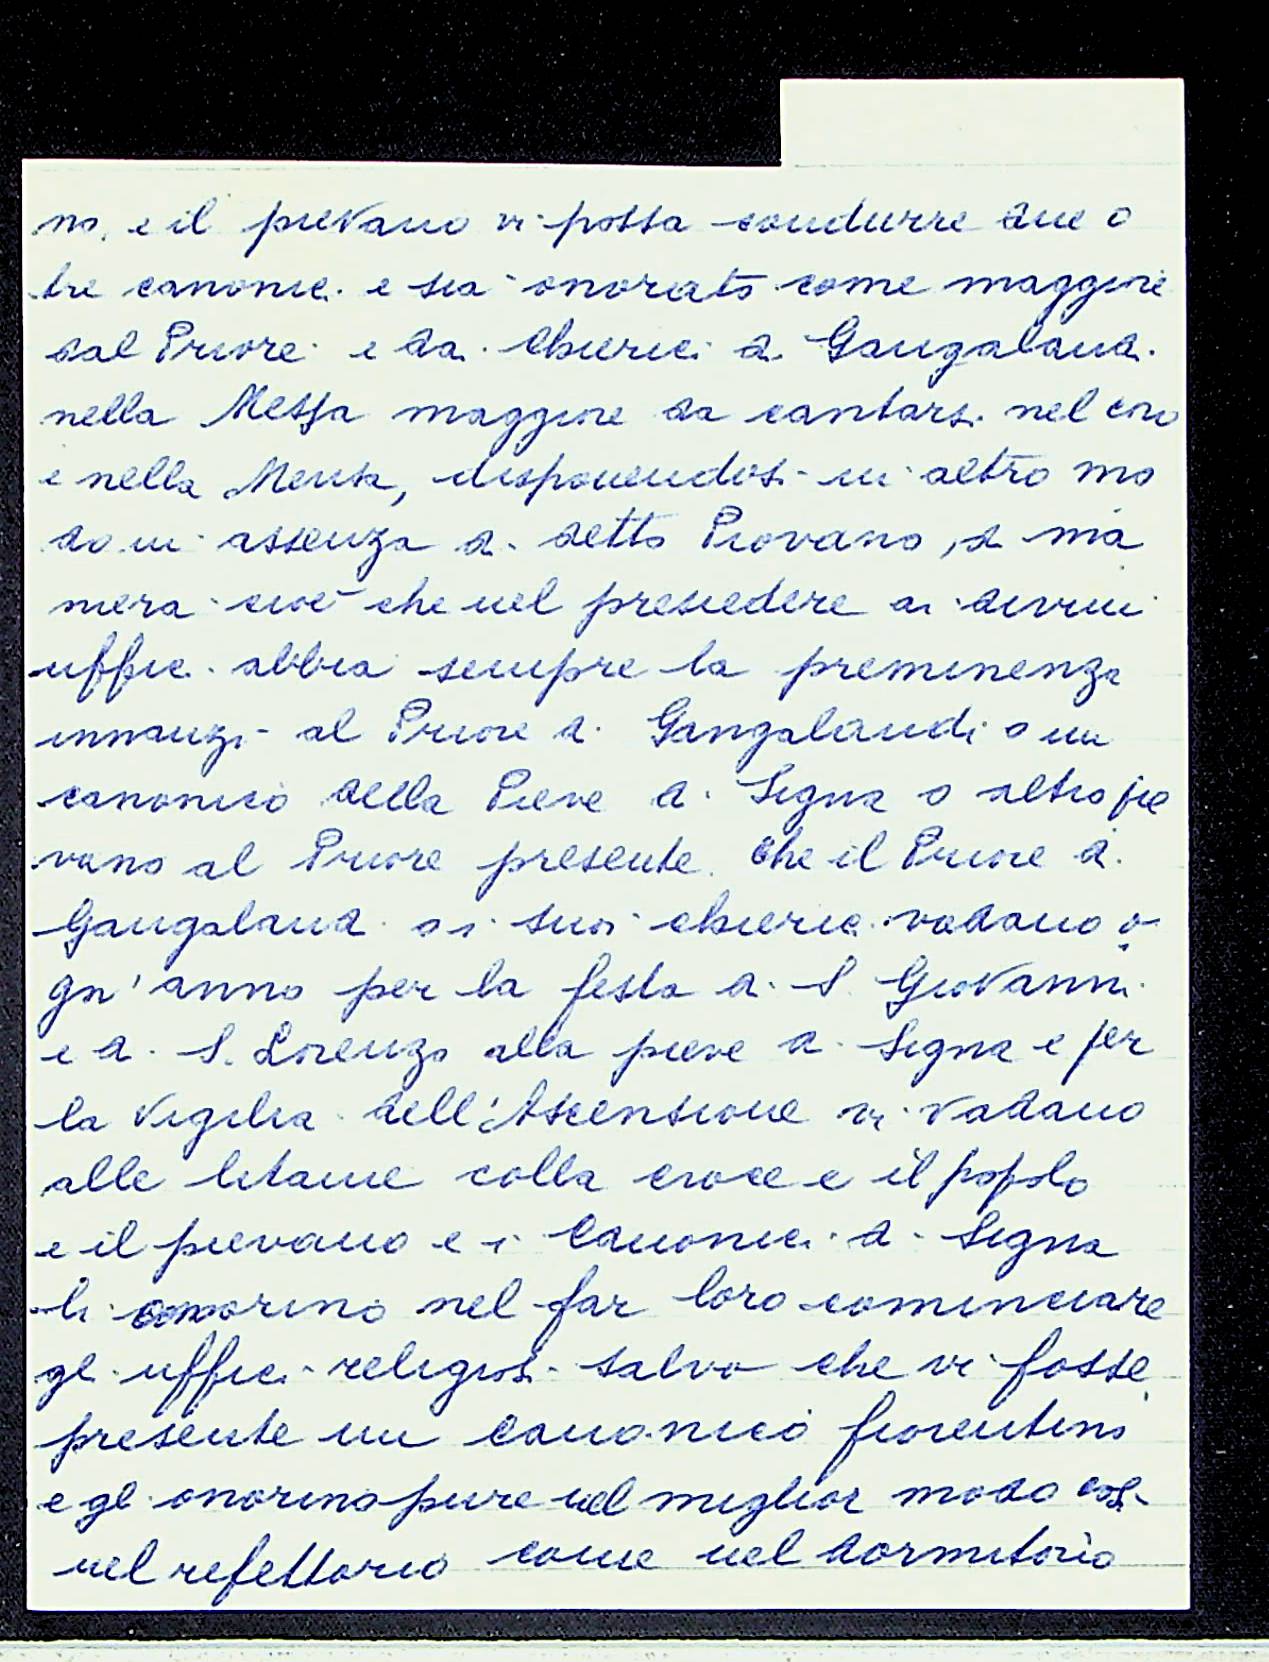 no, e il pievano vi possa condurre due o
tre canonici e sia onorato come maggiore
dal Priore e da chierici di Gangalandi
nella Messa maggiore da cantarsi nel coro
e nella Mensa, disponendosi in altro mo
do in assenza di detto Piovano, di ma
niera cioè che nel presiedere ai divini
uffici abbia sempre la preminenza
innanzi al Priore di Gangalandi o un
canonico della Pieve di Signa o altro pie
vano al Priore presente. Che il Priore di
Gangalandi o i suoi chierici vadano o
gn'anno per la festa di S. Giovanni
e di S. Lorenzo alla pieve di Signa e per
la Vigilia dell'Ascensione vi vadano
alle letanie colla croce e il popolo
e il pievano e i Canonici di Signa
li onorino nel far loro cominciare
gli uffici religiosi salvo che vi fosse
presente un canonico fiorentino
e gli onorino pure nel miglior modo così
nel refettorio come nel dormitorio